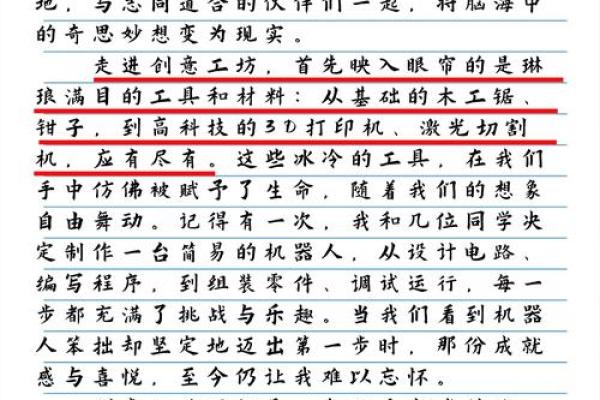 地，与志同道合的伙伴们一起，将脑海中
的奇思妙想变为现实。
走进创意工坊，首先映入眼帘的是琳
琅满目的工具和材料：从基础的木工锯、
钳子，到高科技的3D打印机、激光切割
机，应有尽有。这些冰冷的工具，在我们
手中仿佛被赋予了生命，随着我们的想象
自由舞动。记得有一次，我和几位同学决
定制作一台简易的机器人，从设计电路、
编写程序，到组装零件、调试运行，每一
步都充满了挑战与乐趣。当我们看到机器
人笨拙却坚定地迈出第一步时，那份成就
感与喜悦，至今仍让我难以忘怀。